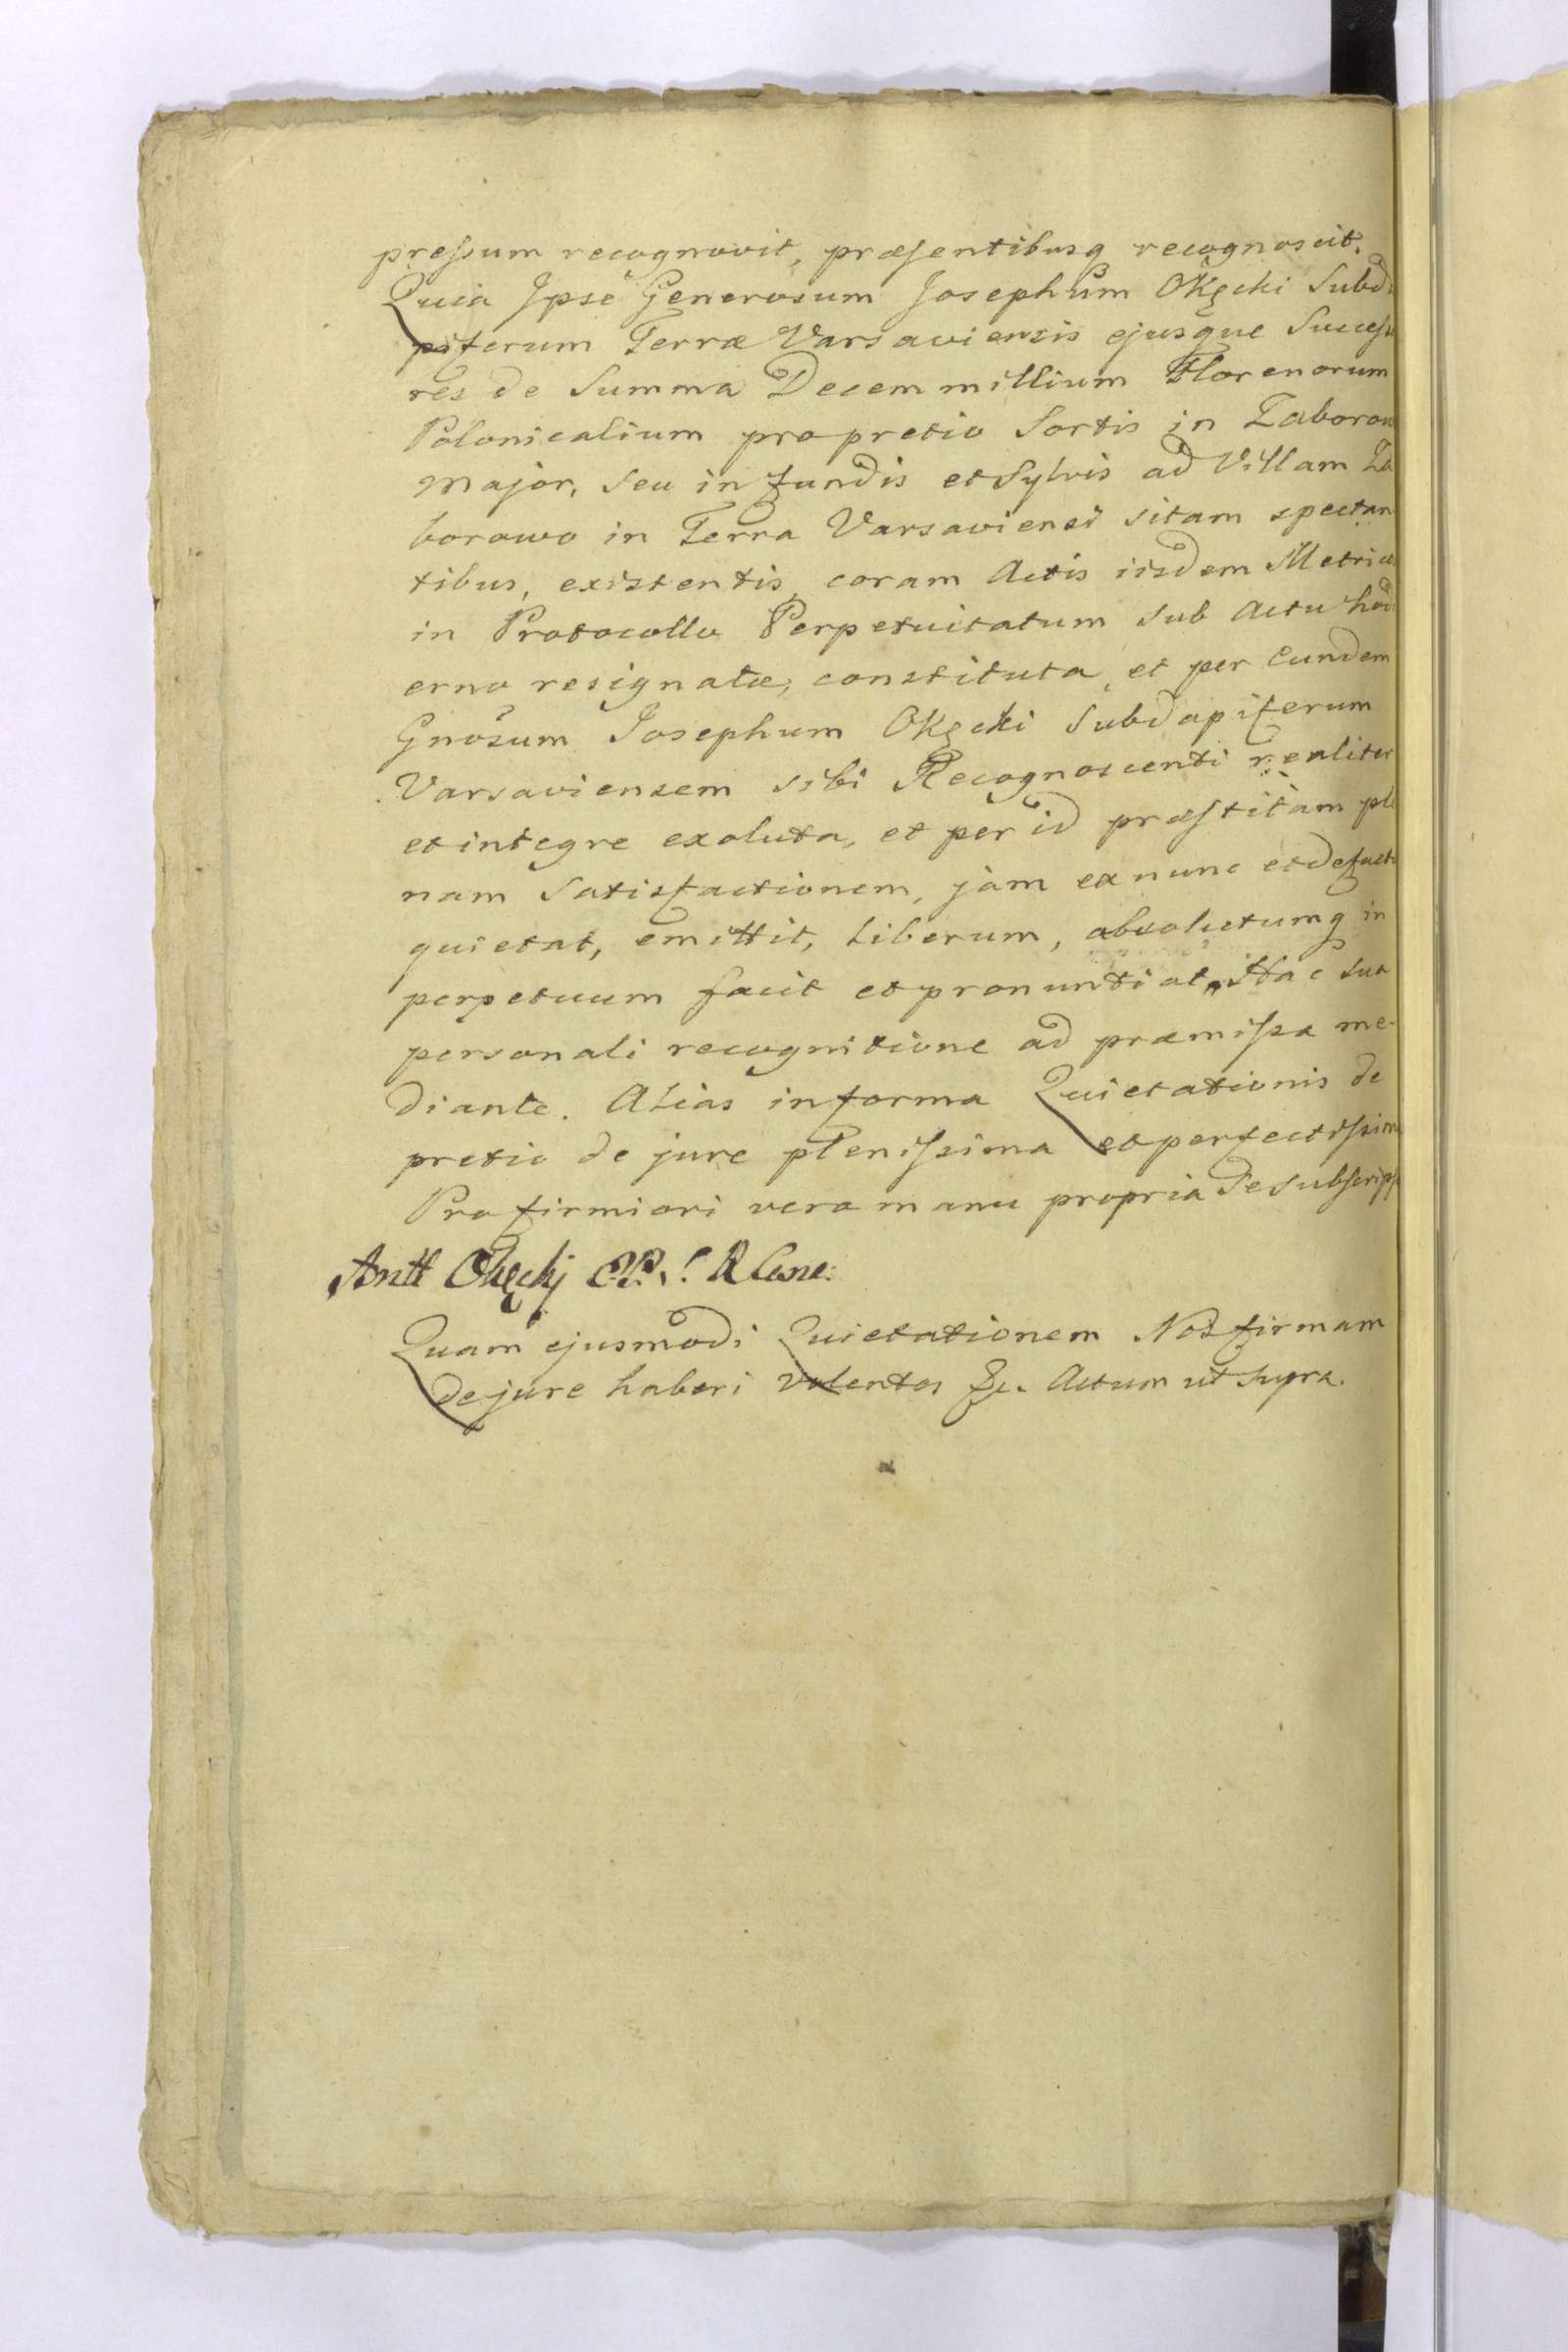 preſsum recognovit, præſentibusq recognoscit.
Quia Ipse Generosum Josephum Okęcki Subda
piferum Terræ Varsaviensis ejusque Succeſso
res de Summa Decem millium Florenorum
Polonicalium pro pretio Sortis in Zaborow
Major, seu in fundis et Sylvis ad Villam Za
borowo in Terra Varsaviensi sitam spectan
tibus, existentis, coram Actis iisdem Metrices
in Protocollo Perpetuitatum sub Actu hodi
erno resignatæ, constituta, et per Eundem
Gnosum Josephum Okęcki Subdapiferum
Varsaviensem sibi Recognoscenti realiter
et integre exoluta, et per id præſtitam ple
nam Satisfactionem, jam ex nunc et de facto
quietat, emittit, Liberum, absolutumq in
perpetuum facit et pronuntiat, Hac sua
personali recognitione ad præmiſsa me-
diante. Alias in forma Quietationis de
pretio de jure pleniſsima et perfectiſsima
Pro firmiori vero manu propria Se subſcripſit
Antt Okęckj
Quam ejusmodi Quietationem Nos firmam
de jure haberi volentes &c. Actum ut supra.